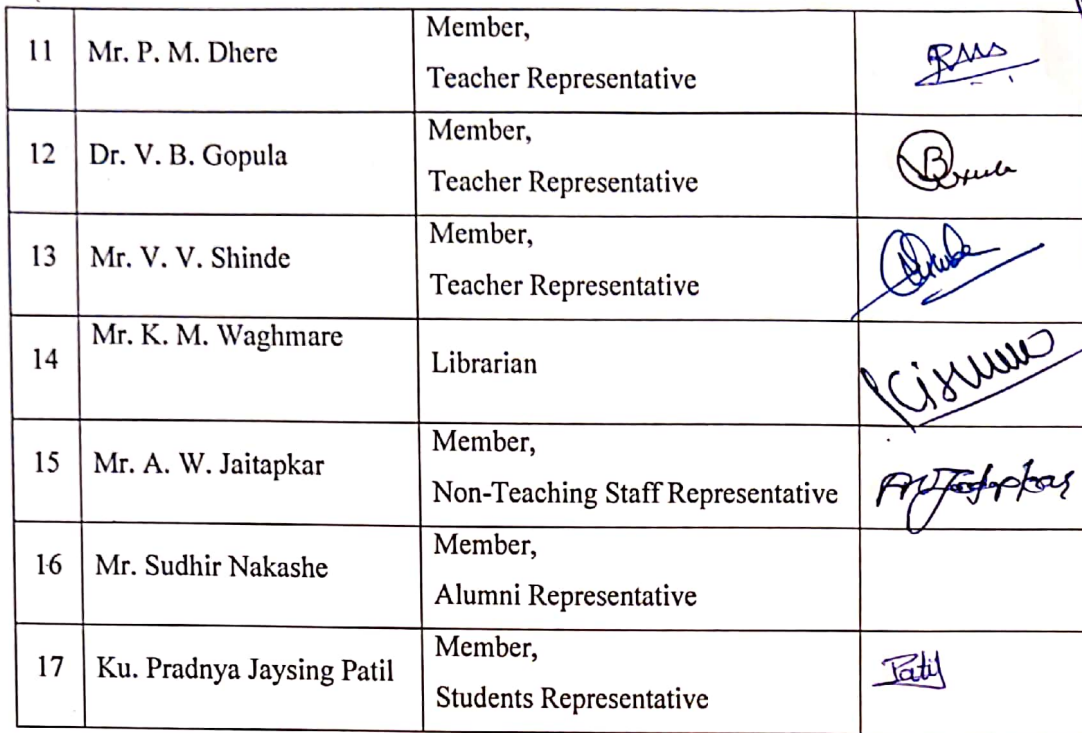 11 Mr. P. M. Dhere Member,
Teacher Representative
12 Dr. V. B. Gopula Member,
Teacher Representative
13 Mr. V. V. Shinde Member,
Teacher Representative
14 Mr. K. M. Waghmare Librarian
15 Mr. A. W. Jaitapkar Member,
Non-Teaching Staff Representative
16 Mr. Sudhir Nakashe Member,
Alumni Representative
17 Ku. Pradnya Jaysing Patil Member, Patil
Students Representative